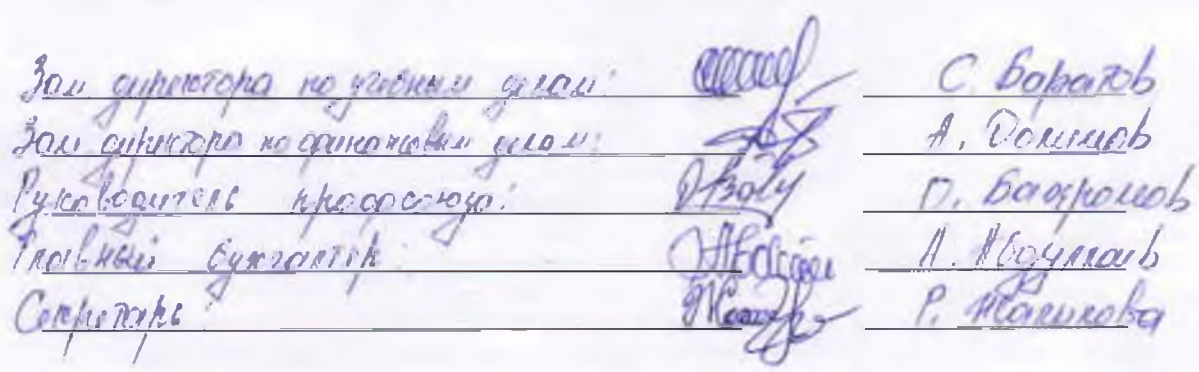 Зам директора по учебным делам: С. Баратов
Зам директора по финансовым делам: А. Долимов
Руководитель профсоюза: О. Бахромов
Главный бухгалтер: А. Абдуллаев
Секретарь: Р. Жалилова